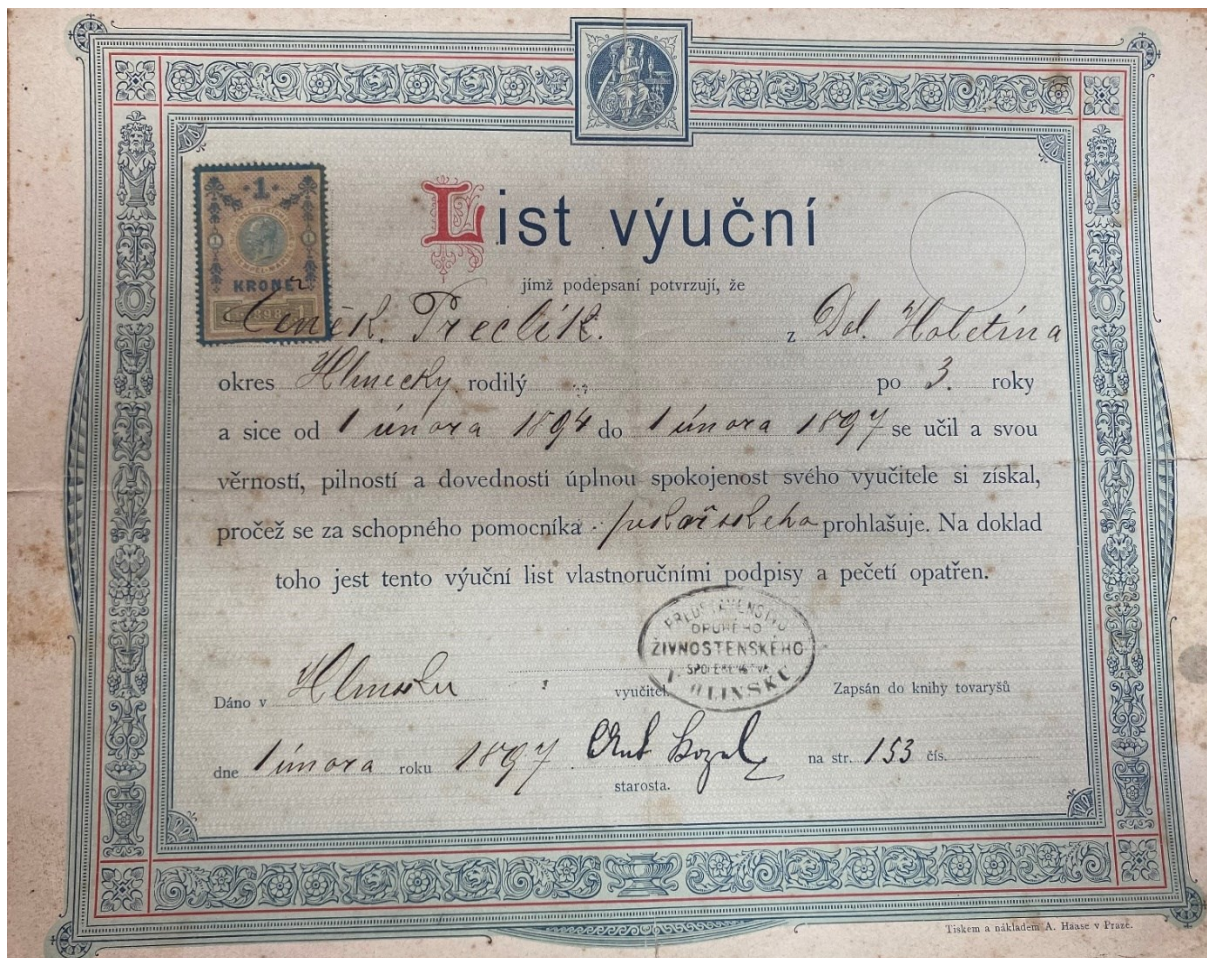 1
KRONE
1898
List výuční
jímž podepsaní potvrzují, že
Čeněk Preclík. z Dol. Holetína
okres Hlinecký rodilý po 3. roky
a sice od 1 února 1894 do 1 února 1897 se učil a svou
věrností, pilností a dovedností úplnou spokojenost svého vyučitele si získal,
pročež se za schopného pomocníka pekařského prohlašuje. Na doklad
toho jest tento výuční list vlastnoručními podpisy a pečetí opatřen.
PŘEDSTAVENSTVO
DRUHÉHO
ŽIVNOSTENSKÉHO
SPOLEČENSTVA
V HLINSKU
Dáno v Hlinsku vyučitel. Zapsán do knihy tovaryšů
dne 1 února roku 1897 Ant na str. 153 čís.
starosta.
Tiskem a nákladem A. Haase v Praze.